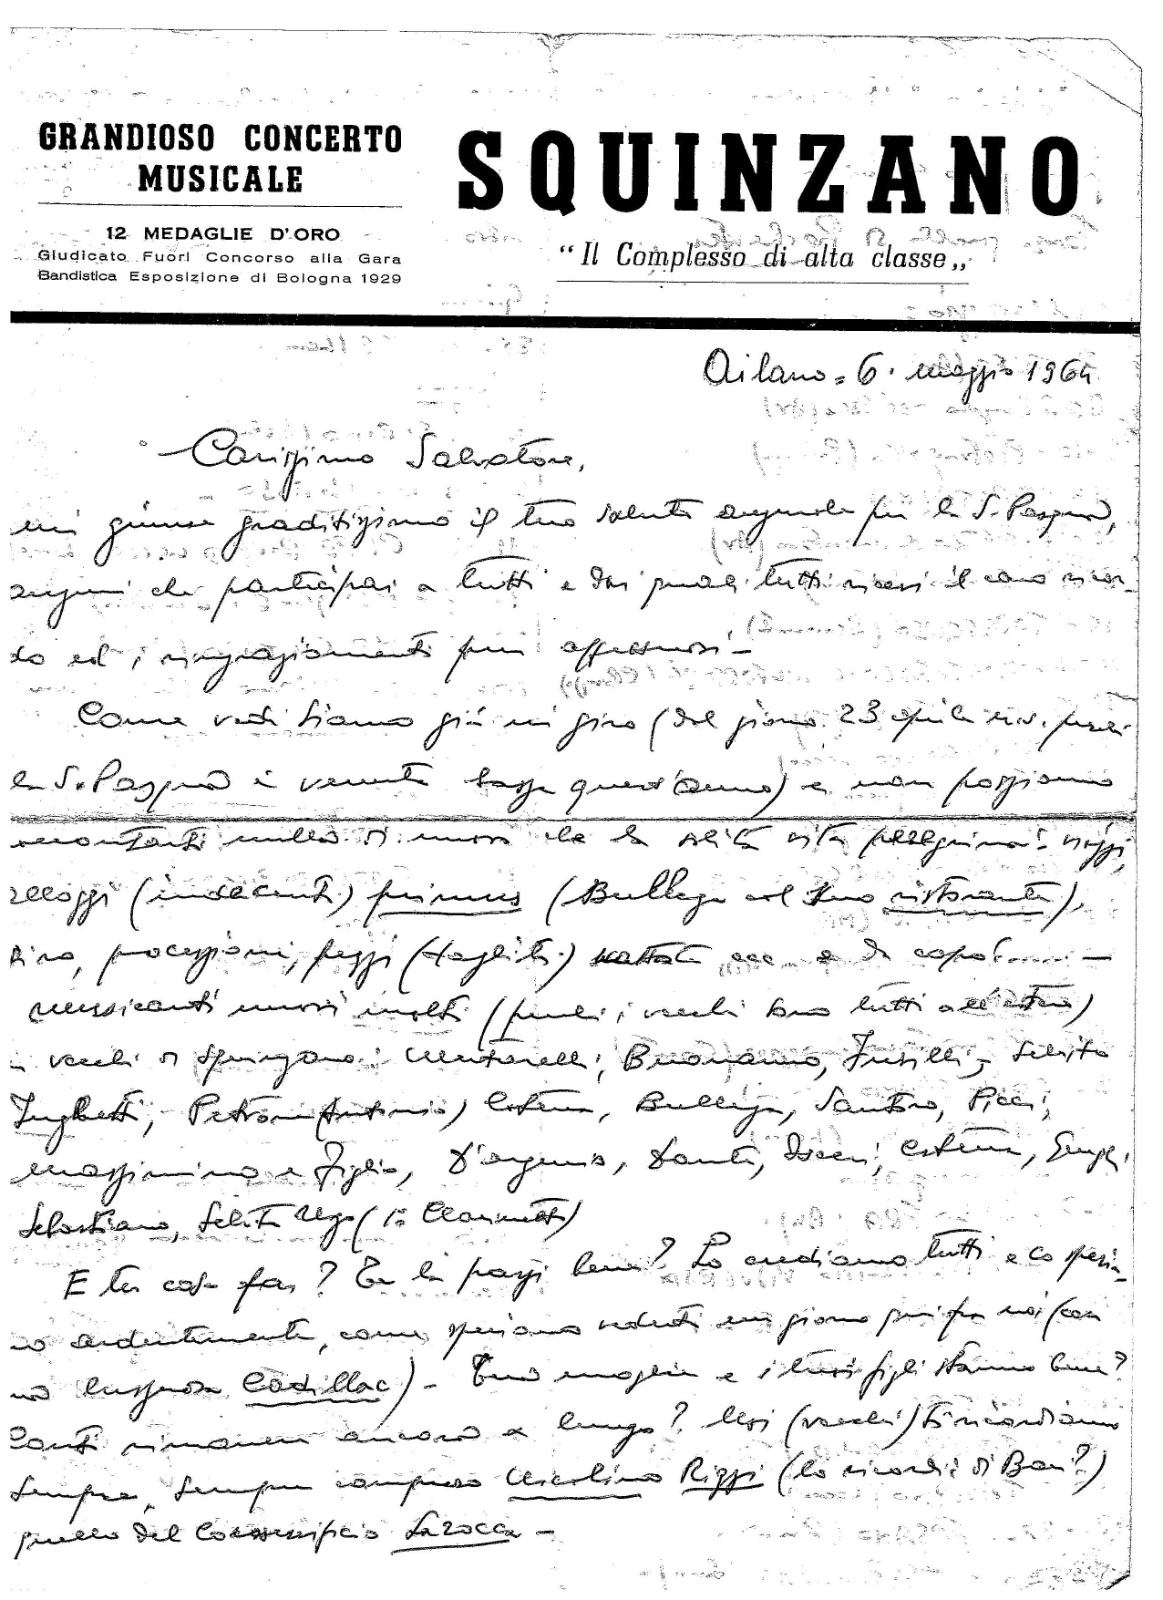 GRANDIOSO CONCERTO
MUSICALE
12 MEDAGLIE D'ORO
Giudicato Fuori Concorso alla Gara
Bandistica Esposizione di Bologna 1929
SQUINZANO
"Il Complesso di alta classe„
Ailano = 6. maggio 1964
Carissimo Salvatore,
mi giunse graditissimo il tuo saluto augurale per la S. Pasqua,
auguri che participai a tutti e dai quali tutti ricevi il caro ricor-
do ed i ringraziamenti più affettuosi -
Come vedi siamo già in giro (dal giorno 23 aprile u.s. perchè
la S. Pasqua è venuta bassa quest'anno) e non possiamo
raccontarti nulla di nuovo che la solita vita pellegrina: viaggi,
alloggi (indecenti) primus (Bullega col suo ristorante),
giro, processioni, pezzi (tagliati) ecc. e da capo
musicanti nuovi molti (perchè i vecchi sono tutti all'estero)
vecchi di Squinzano: Buonanno, Fusilli, Selito
Petroni (Antonio) Bullega, Santoro, Picci,
Massimino e figlio, D'Argenio, Dante,
Sebastiano, Selito Ugo (1° Clarinetto)
E tu cosa fai? Te la passi bene? Lo crediamo tutti e lo speria-
mo ardentemente, come speriamo vederti un giorno qui fra noi (con
una lussuosa Cadillac) - Tua moglie e i tuoi figli stanno bene?
Conti rimanere ancora a lungo? Noi (vecchi) ti ricordiamo
sempre, sempre compreso Nicolino Rizzi (lo ricordi? di Bari?)
quello del Calzaturificio Larocca -